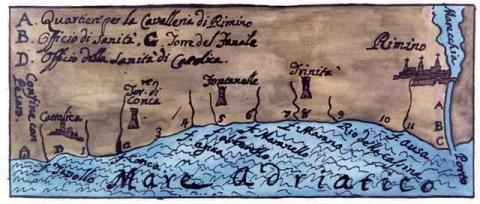 A. Quartieri per la Cavalleria di Rimino
B. Officio di Sanità, C. Torre del Fanale
D. Officio della Sanità di Catolica.
Marecchia
Rimino
Trinità
Fontanelle
Tor. di
Conca
Catolica
Confine con
Pesaro
A
B
C
D
a
3
4
5
6
7
8
9
10
11
Porto
Ausa
Rio della Colina
F. Marano
F. Maranello
Conca
Tavollo
Mare Adriatico